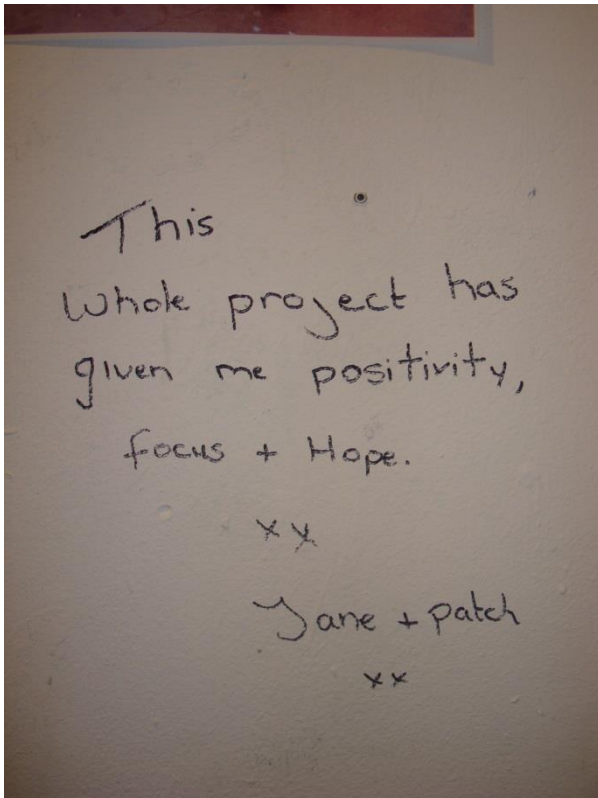 This
Whole project has
given me positivity,
focus + Hope.
xx
Jane + patch
xx